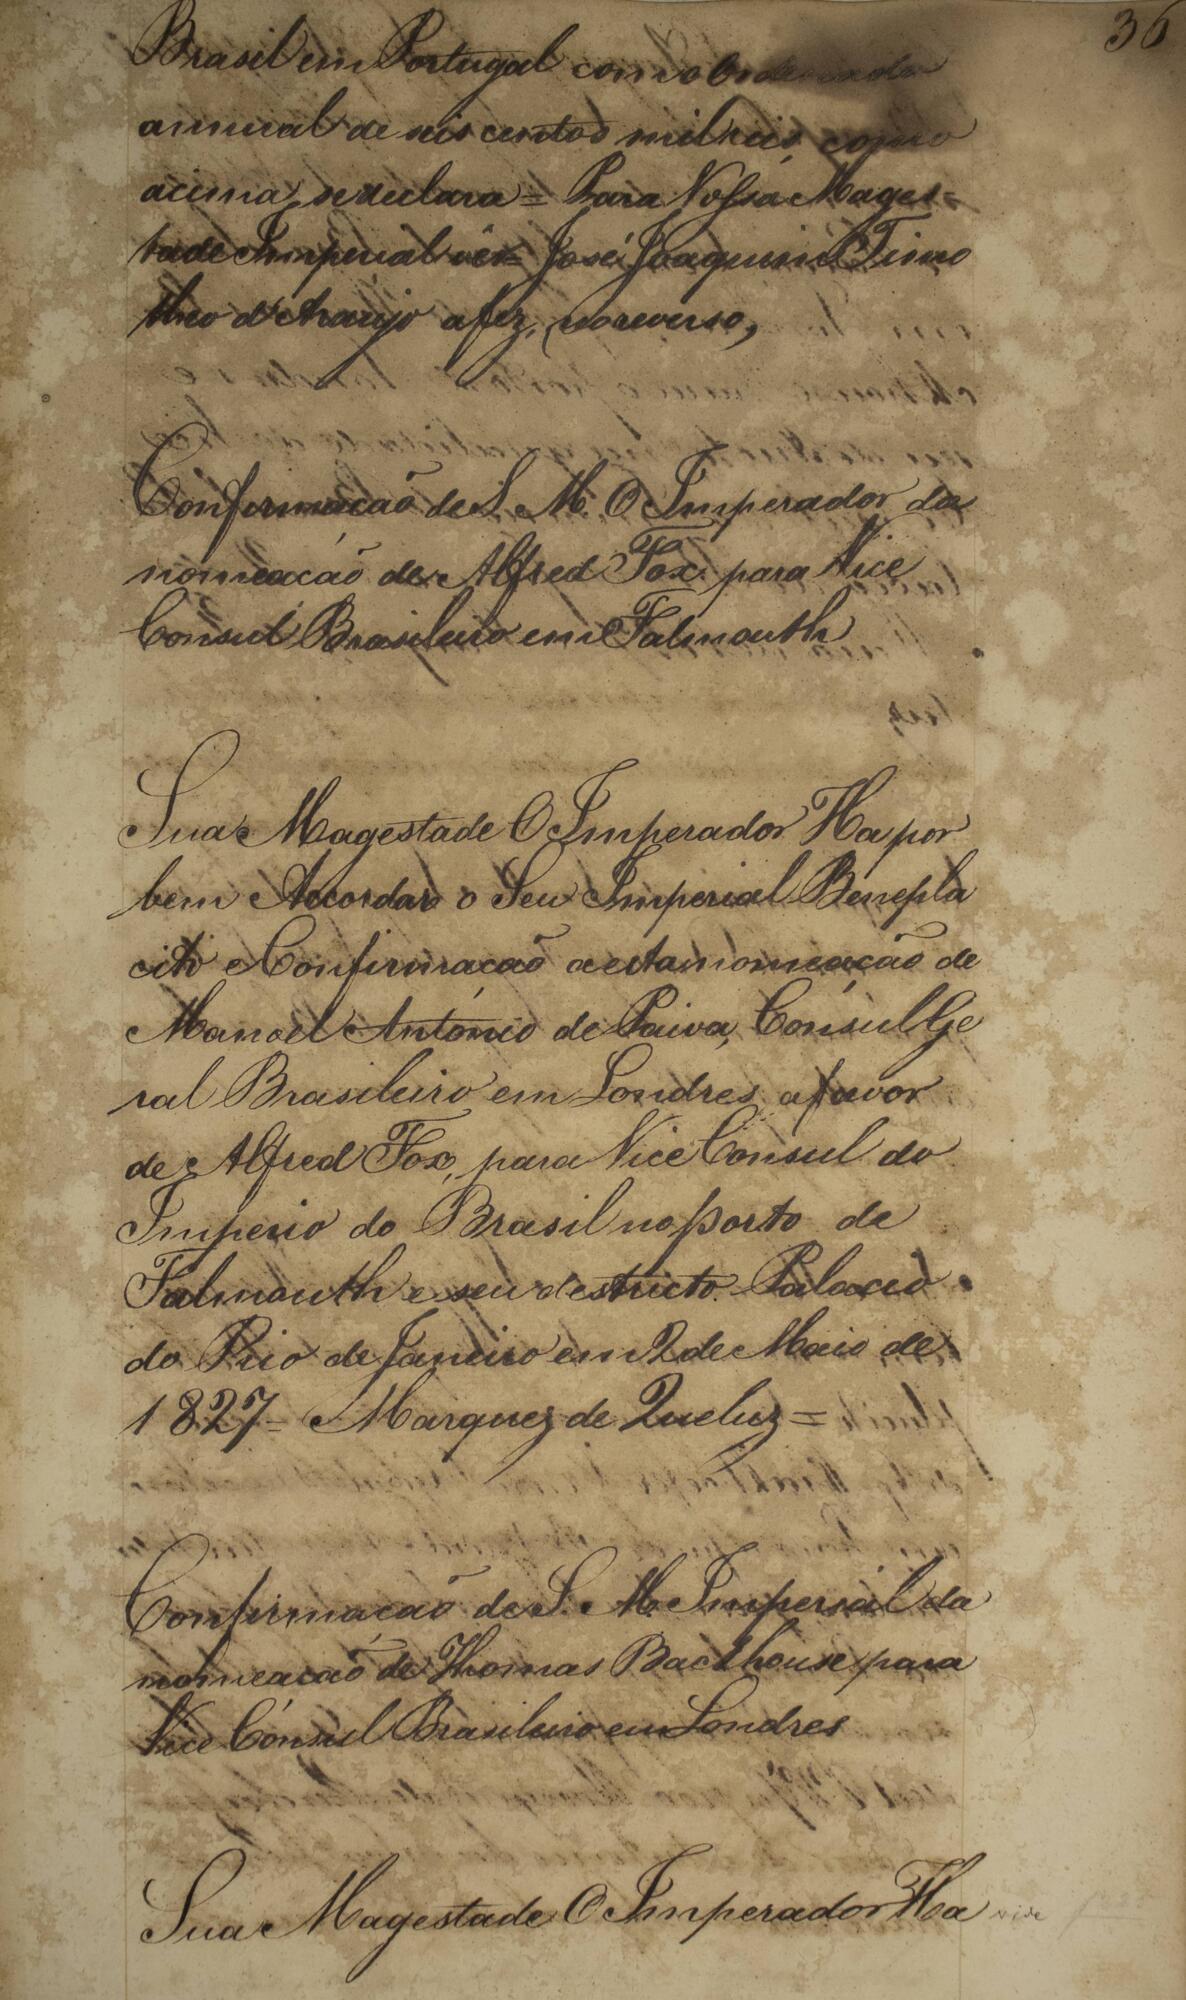 36
Brasil em Portugal com o Ordenado
annual de seis centos mil reis, como
acima se declara = Para Vossa Mages-
tade Imperial vêr = José Joaquim Timo
theo d'Araujo a fez, no reverso,
Confirmação de S. M. O Imperador da
nomeacão de Alfred Fox para Vice
Consul Brasileiro em Falmouth
Sua Magestade O Imperador Ha por
bem Accordar o Seu Imperial Benepla
cito e Confirmação a esta nomeação de
Manoel António de Paiva, Cónsul Ge
ral Brasileiro em Londres, a favor
de Alfred Fox, para Vice Consul do
Imperio do Brasil no porto de
Falmouth e seu destricto. Palacio
do Rio de Janeiro em 2 de Maio de
1827 = Marquez de Queluz =
Confirmação de S. M. Imperial da
nomeacão de Thomas Backhouse para
Vice Cónsul Brasileiro em Londres
Sua Magestade O Imperador Ha